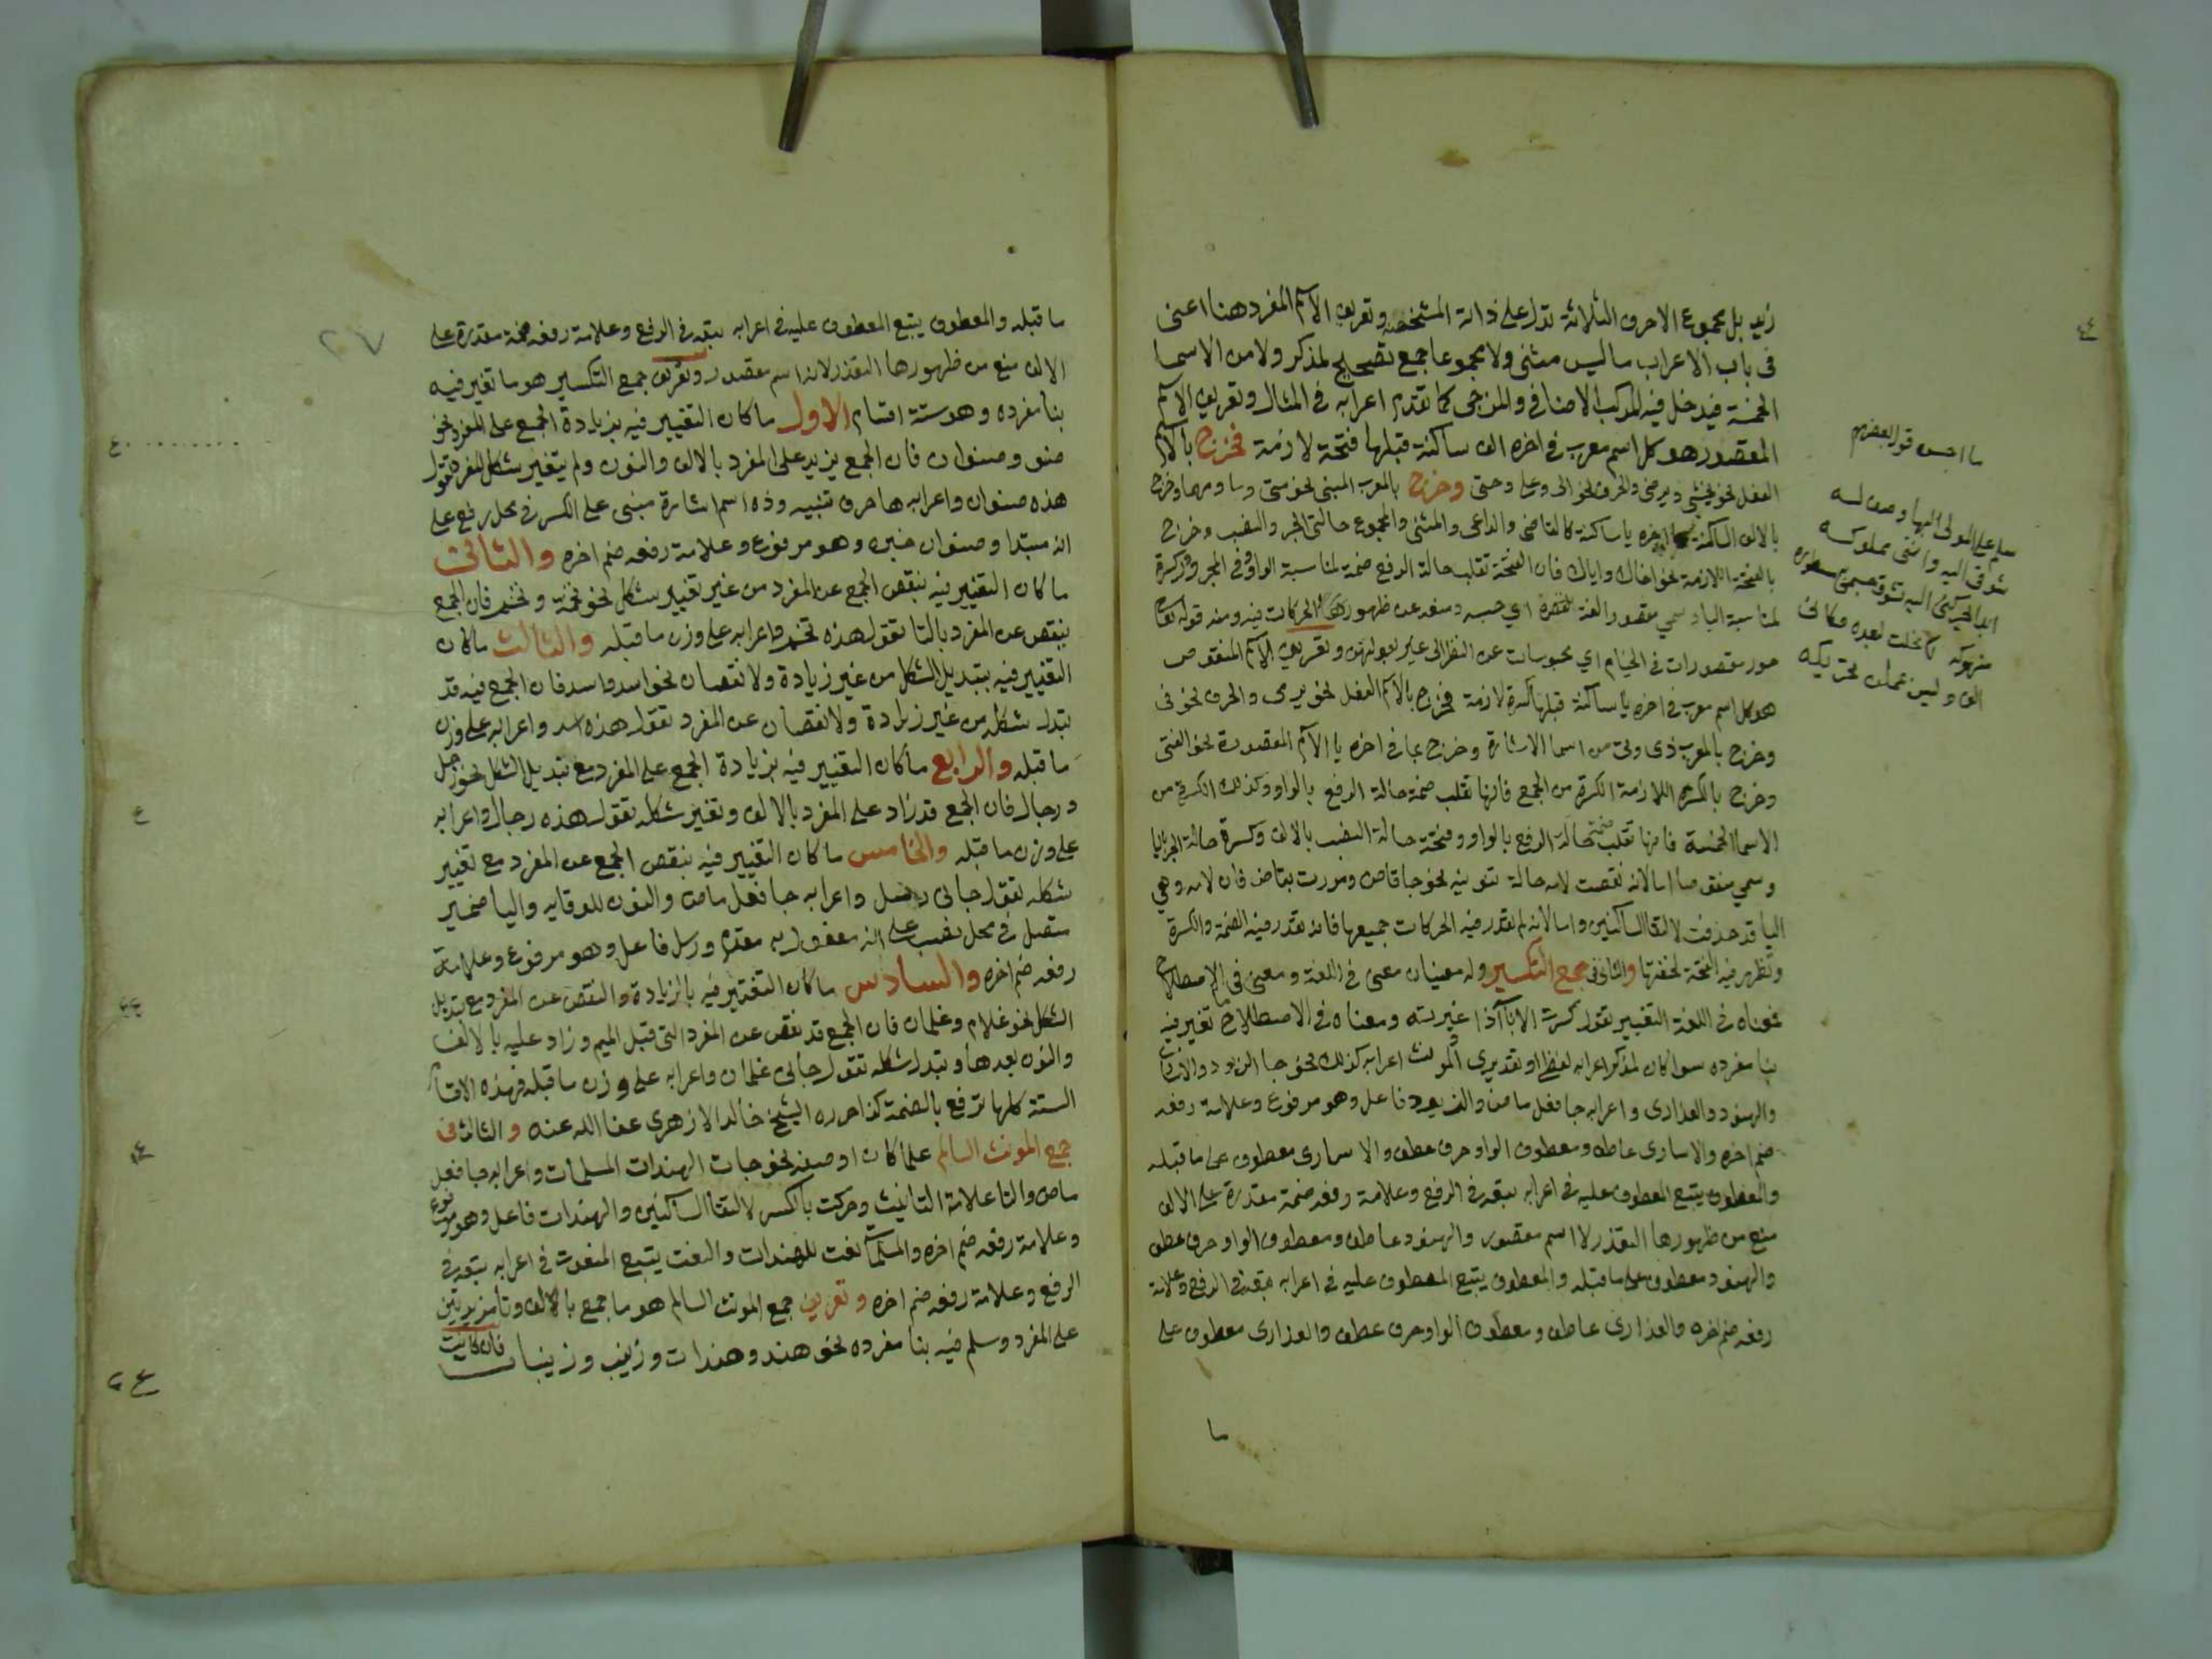 زيد بل مجموع الاحرف الثلاثة تدل على ذاته المشخصه وتعريف الاسم المفرد هنا اعني
في باب الاعراب ما ليس مثنى ولا مجموعا جمع تصحيح لمذكر ولا من الاسما
الخمسة فيدخل فيه المركب الاضافي والمزجي كما تقدم اعرابه في المثال وتعريف الاسم
المقصور هو كل اسم معرب في اخره الف ساكنة قبلها فتحة لازمة فخرج بالاسم
الفعل نحو يخشى ويرضى والحرف نحو الى وعلى وحتى وخرج بالمعرب المبني نحو متى وما ومهما وخرج
بالالف الساكنة ما اخره يا ساكنة كالقاضي والداعي والمثنى والمجموع حالتي الجر والنصب وخرج
بالفتحة اللازمة نحو اخاك واباك فان الفتحة تقلب حالة الرفع ضمة لمناسبة الواو وفي الجر كسرة
لمناسبة اليا وسمي مقصورا لغة لقصره اي حبسه ومنعه عن ظهور الحركات فيه ومنه قوله تعالى
حور مقصورات في الخيام اي محبوسات عن النظر الى غير بعولتهن وتعريف الاسم المنقوص
هو كل اسم معرب في اخره يا ساكنة قبلها كسرة لازمة فخرج بالاسم الفعل نحو يرمي والحرف نحو في
وخرج بالمعرب ذي وتي من اسما الاشارة وخرج بما في اخره يا الاسم المقصورة نحو الفتى
وخرج بالكسرة اللازمة الكسرة من الجمع فانها تقلب ضمة حالة الرفع بالواو وكذلك الكسرة من
الاسما الخمسة فانها تقلب ضمة حالة الرفع بالواو وفتحة حالة النصب بالالف وكسرة حالة الجر باليا
وسمي منقوصا اما لانه نقصت لامه حالة تنوينه نحو جا قاض ومررت بقاض فان لامه وهي
اليا قد حذفت لالتقا الساكنين واما لانه لم تقدر فيه الحركات جميعها فانه تقدر فيه الضمة والكسرة
وتظهر فيه الفتحة لخفتها والثاني في جمع التكسير وله معنيان معنى في اللغة ومعنى في الاصطلاح
فمعناه في اللغة التغيير تقول كسرت الانا اذا غيرته ومعناه في الاصطلاح ما تغير فيه
بنا مفرده سوا كان لمذكر اعرابه لفظا او تقديري او لمونث اعرابه كذلك نحو جا الزيود والاسارى
والهنود والعذارى واعرابه جا فعل ماض والزيود فاعل وهو مرفوع وعلامة رفعه
ضم اخره والاسارى عاطف ومعطوف الواو حرف عطف والاسارى معطوف على ما قبله
والمعطوف يتبع المعطوف عليه في اعرابه تبعه في الرفع وعلامة رفعه ضمة مقدرة على الالف
منع من ظهورها التعذر لا اسم مقصور والهنود عاطف ومعطوف الواو حرف عطف
والهنود معطوف على ما قبله والمعطوف يتبع المعطوف عليه في اعرابه تبعه في الرفع وعلامة
رفعه ضم اخره والعذارى عاطف ومعطوف الواو حرف عطف والعذارى معطوف على
ما
ما احسن قول بعضهم
سلم على المولى البها وصف له
شوقي اليه وانني مملوكه
ابدا يحركني اليه تشوقي جسمي
منهوكه كم نحلت لبعده فكانني
الف وليس بممكن تحريكه
٢٧
ما قبله والمعطوف يتبع المعطوف عليه في اعرابه تبعه في الرفع وعلامة رفعه ضمة مقدرة على
الالف منع من ظهورها التعذر لانه اسم مقصور وتعريف جمع التكسير هو ما تغير فيه
بنا مفرده وهو ستة اقسام الاول ما كان التغيير فيه بزيادة الجمع على المفرد نحو
صنو وصنوان فان الجمع يزيد على المفرد بالالف والنون ولم يتغير شكل المفرد تقول
هذه صنوان واعرابه ها حرف تنبيه وذه اسم اشارة مبني على الكسر في محل رفع على
انه مبتدا وصنوان خبره وهو مرفوع وعلامة رفعه ضم اخره والثاني
ما كان التغيير فيه بنقص الجمع عن المفرد من غير تغيير شكل نحو تخمة وتخم فان الجمع
ينقص عن المفرد بالتا تقول هذه تخم واعرابه على وزن ما قبله والثالث ما كان
التغيير فيه بتبديل الشكل من غير زيادة ولا نقصان نحو اسد واسد فان الجمع فيه قد
تبدل شكله من غير زيادة ولا نقصان عن المفرد تقول هذه اسد واعرابه على وزن
ما قبله والرابع ما كان التغيير فيه بزيادة الجمع على المفرد مع تبديل الشكل نحو رجل
ورجال فان الجمع قد زاد على المفرد بالالف وتغير شكله تقول هذه رجال واعرابه
على وزن ما قبله والخامس ما كان التغيير فيه بنقص الجمع عن المفرد مع تغيير
شكله تقول جاني رسل واعرابه جا فعل ماض والنون للوقايه واليا ضمير
متصل في محل نصب على انه مفعول به مقدم ورسل فاعل وهو مرفوع وعلامة
رفعه ضم اخره والسادس ما كان التغيير فيه بالزيادة والنقص عن المفرد مع تبديل
الشكل نحو غلام وغلمان فان الجمع قد نقص عن المفرد التي قبل الميم وزاد عليه بالالف
والنون بعدها وتبدل شكله تقول جاني غلمان واعرابه على وزن ما قبله فهذه الاقسام
الستة كلها ترفع بالضمة كذا حرره الشيخ خالد الازهري عفا الله عنه والثالث في
جمع المونث السالم علما كان او صفة نحو جات الهندات المسلمات واعرابه جا فعل
ماض والتا علامة التانيث وحركت بالكسر لالتقا الساكنين والهندات فاعل وهو مرفوع
وعلامة رفعه ضم اخره والمسلمات نعت للهندات والنعت يتبع المنعوت في اعرابه تبعه في
الرفع وعلامة رفعه ضم اخره وتعريف جمع المونث السالم هو ما جمع بالالف وتا مزيدتين
على المفرد وسلم فيه بنا مفرده نحو هند وهندات وزينب وزينبات فان كانت